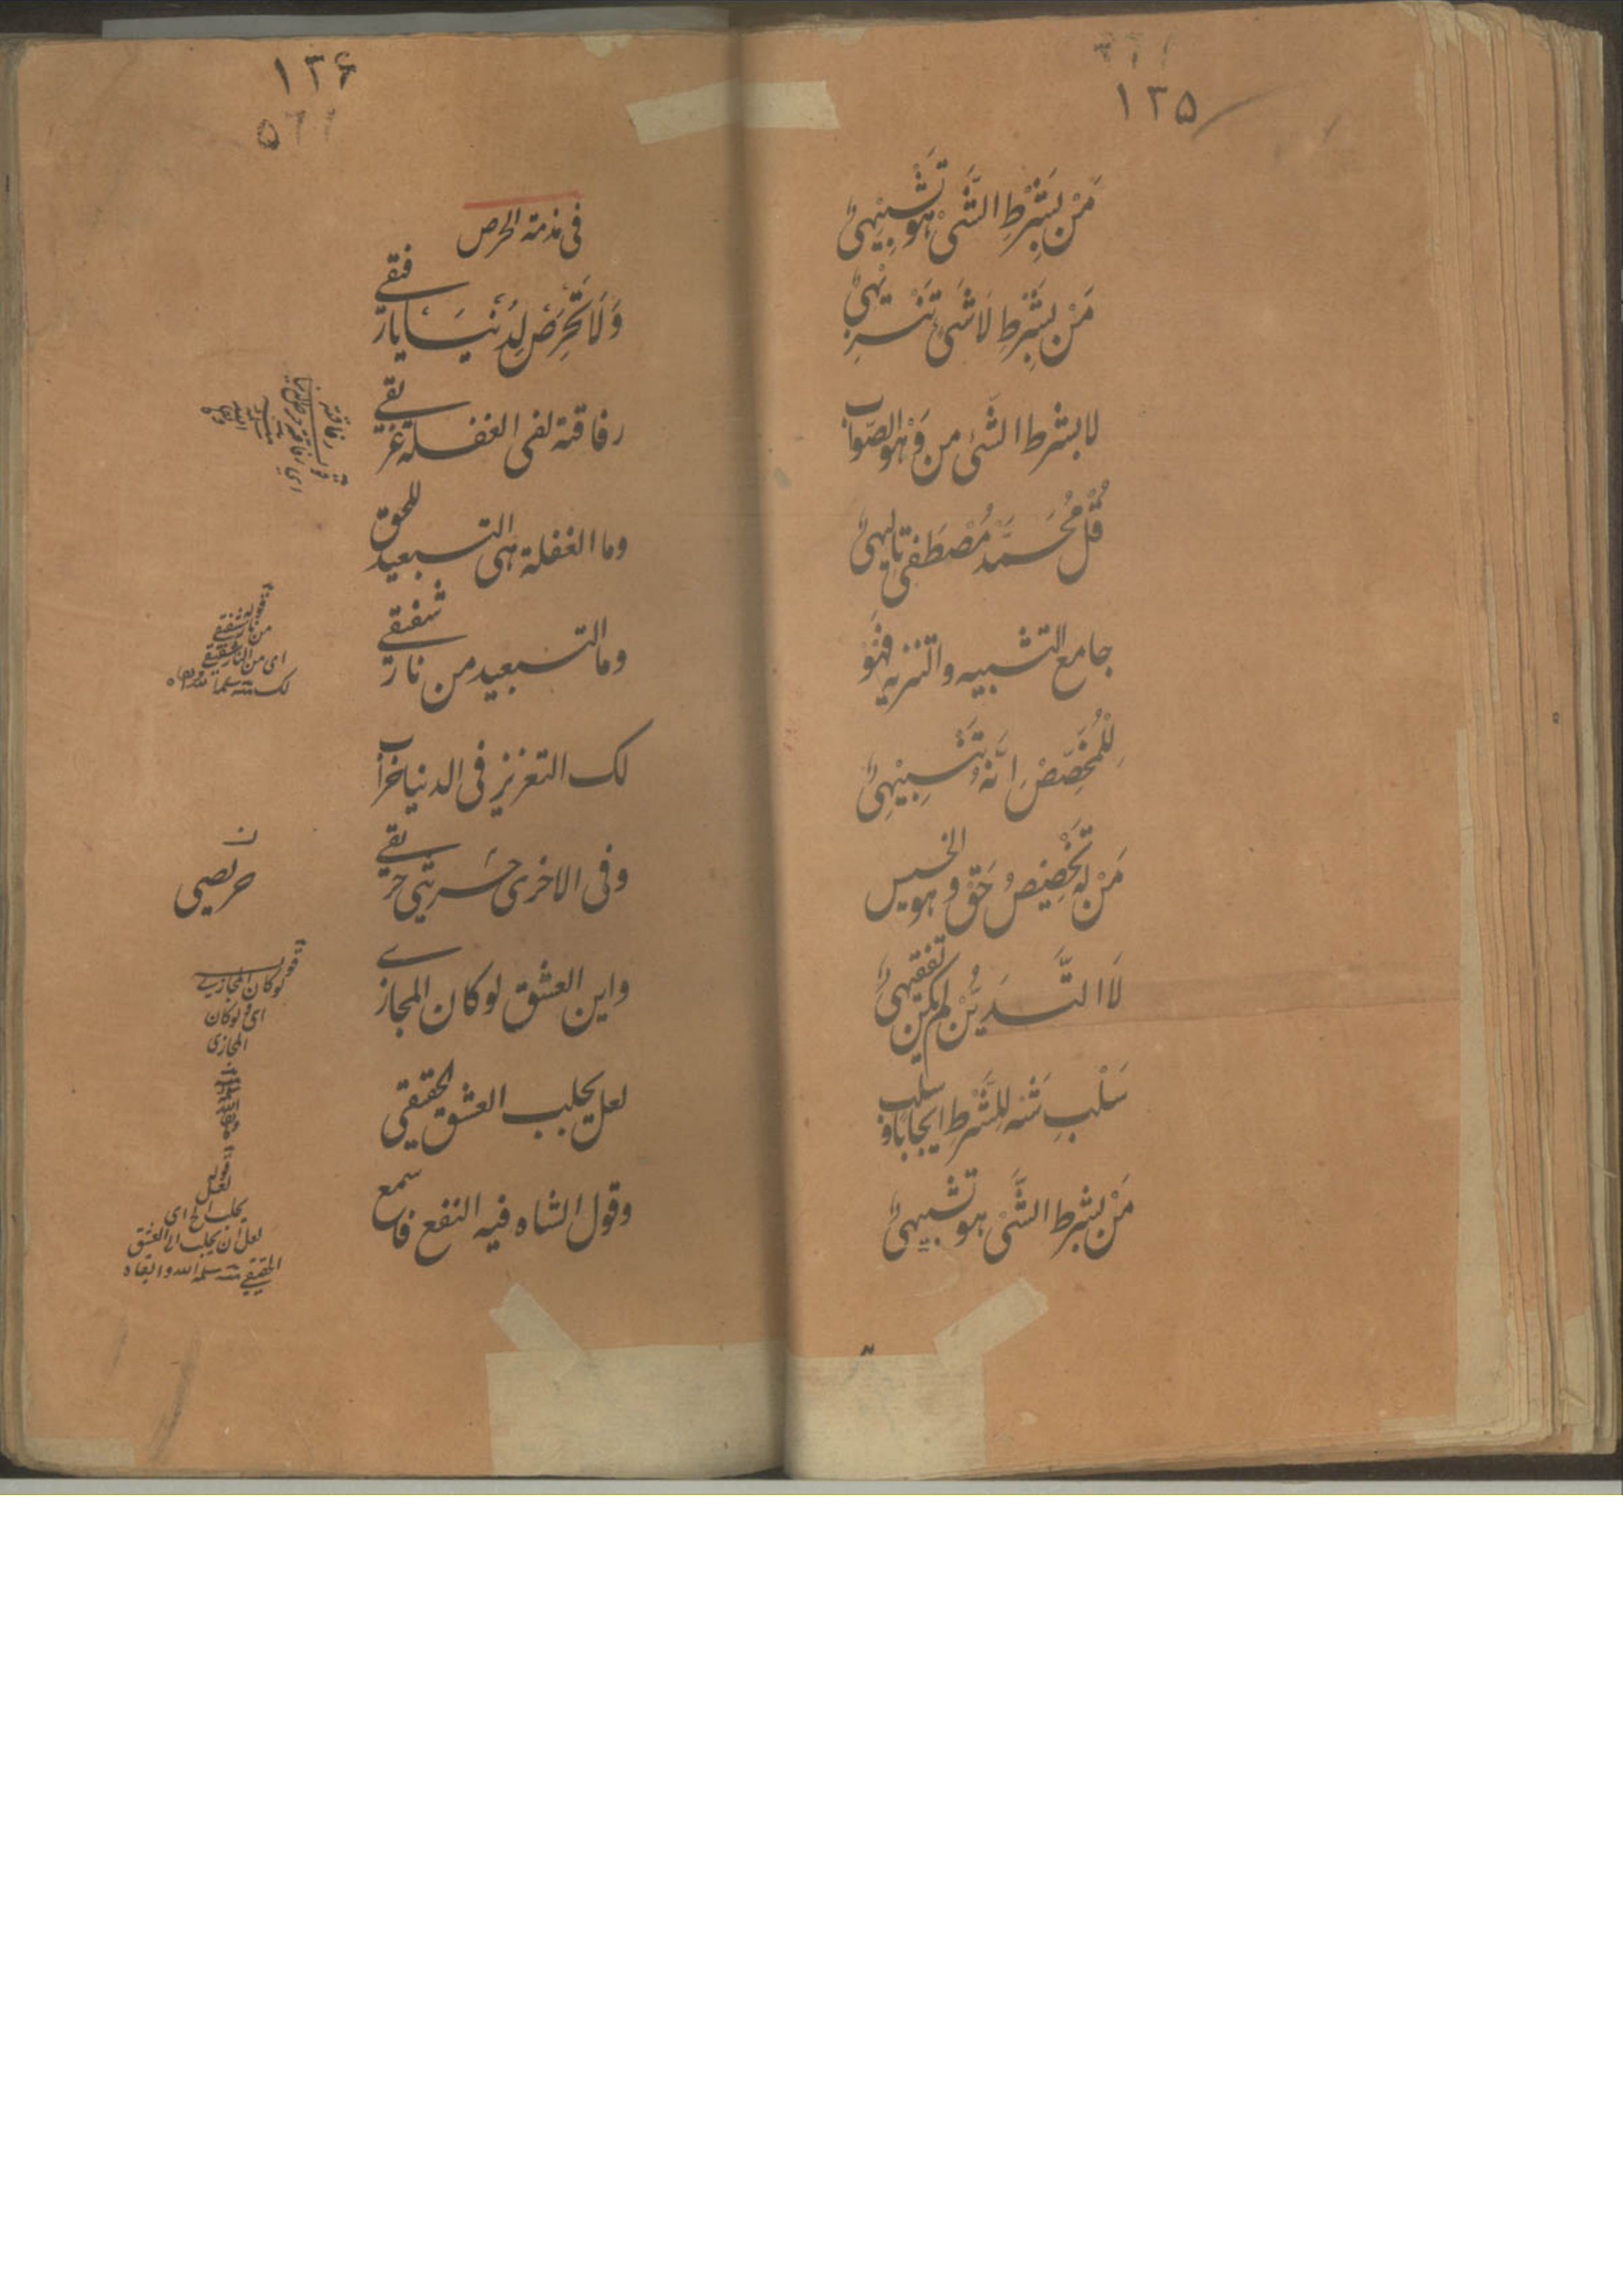 ١٣٥
مَنْ بِشَرْطِ الشَّیْ هُوَ تَشْبِیْهِیٌ
مَنْ بِشَرْطِ لَاشَیْ تَنْزِیْهِیٌ
لا بشرط الشَّیْ من وَهْوَ الصَّوَاب
قُلْ مُحَمَّدْ مُصْطَفَی تَالِیهِیٌ
جامع التشبیه والتنزیه فَهْوَ
لِلْمُخَصِّصْ اِنَّهُ تَشْبِیْهِیٌ
مَنْ لَهُ تَخْصِیْصُ حَقْ وهو الخسیس
لَا التَّدَیُّنْ لم یکن تفقیهیٌ
سَلْبِ شَئْه لِلشَّرْط ایجابًا و سلب
مَنْ بشرط الشَّیْ هو تشبیهیٌ
١٣٦
فی مذمة الحرص
وَلَا تَحْرِصْ لِدُنْیَا یا رفیقے
رفاقتة لفی الغفلة غریقے
وما الغفلة هی التبعید للحق
وما التبعید من نار شفیقے
لک التعزیز فی الدنیا خراب
وفی الاخری حسرتی حریقے
واین العشق لو کان المجازے
لعل یجلب العشق الحقیقی
وقول الشاه فیه النفع فاسمع
رفاقتة
قوله
من نار شفیقے
ای من النار شفیقے
لک
ن
حریصی
قوله
لوکان المجازیے
ای لوکان
المجازی
سلمه الله
قوله
لعل
یجلب الخ ای
لعل ان یجلب الی العشق
الحقیقے سلمه الله وابقاه